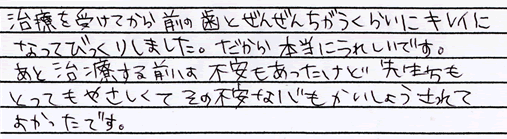 治療を受けてから前の歯とぜんぜんちがうくらいにキレイに
なってびっくりしました。だから本当にうれしいです。
あと治療する前は不安もあったけど先生方も
とってもやさしくてその不安などもかいしょうされて
よかったです。